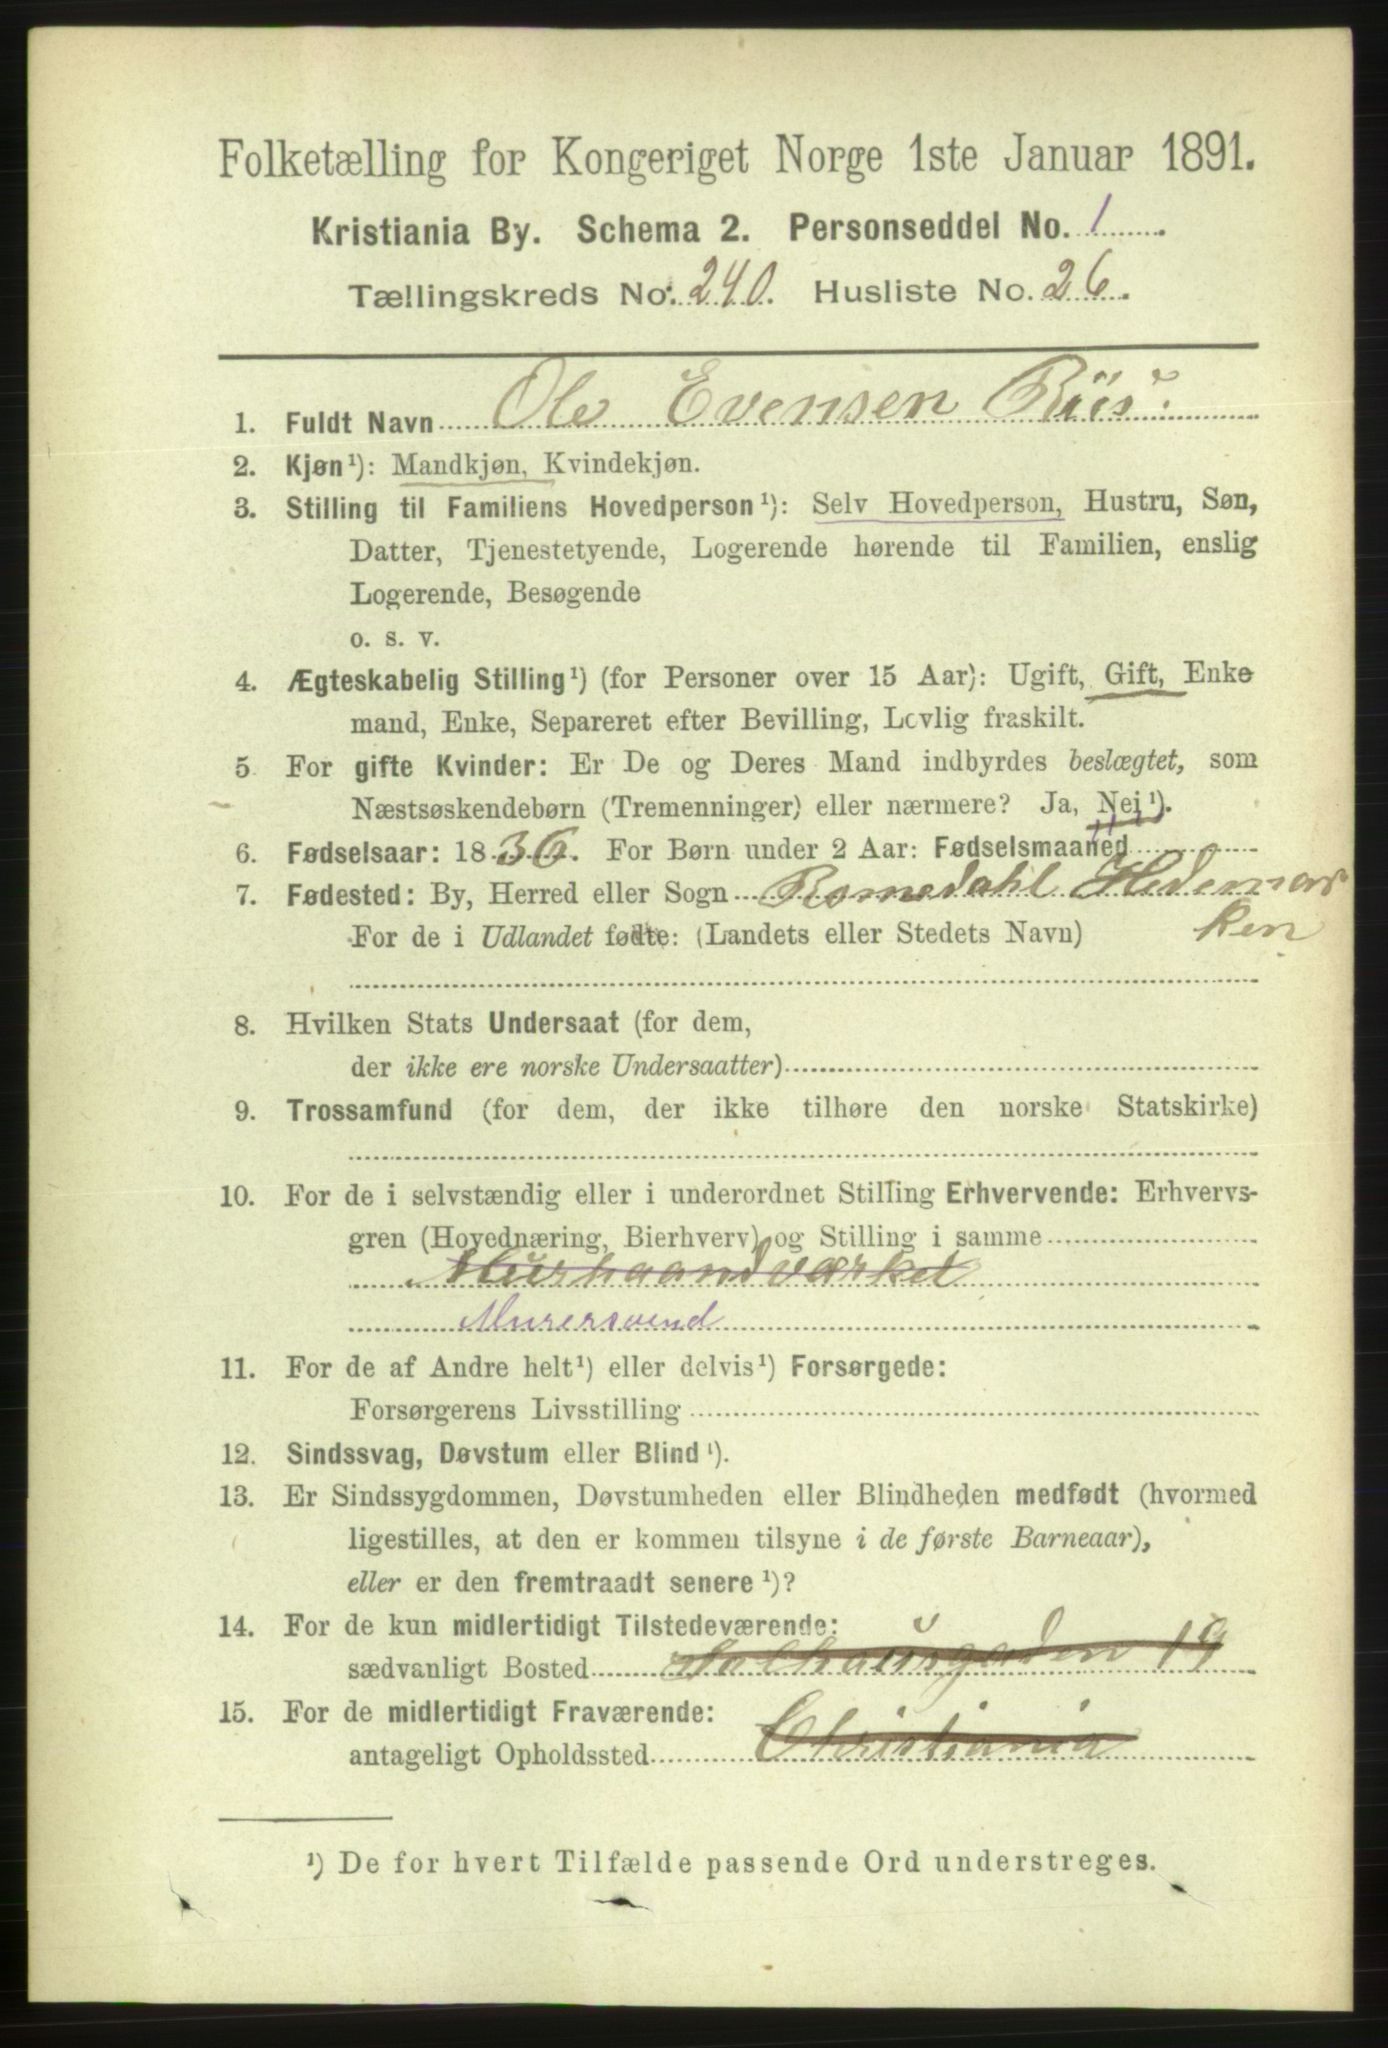 Folketælling for Kongeriget Norge 1ste Januar 1891.
Kristiania By. Schema 2. Personseddel No. 1
Tællingskreds No. 240. Husliste No. 26.
1. Fuldt Navn Ole Evensen Riis.
2. Kjøn¹): Mandkjøn, Kvindekjøn.
3. Stilling til Familiens Hovedperson¹): Selv Hovedperson, Hustru, Søn,
Datter, Tjenestetyende, Logerende hørende til Familien, enslig
Logerende, Besøgende
o. s. v.
4. Ægteskabelig Stilling¹) (for Personer over 15 Aar): Ugift, Gift, Enke
mand, Enke, Separeret efter Bevilling, Lovlig fraskilt.
5 For gifte Kvinder: Er De og Deres Mand indbyrdes beslægtet, som
Næstsøskendebørn (Tremenninger) eller nærmere? Ja, Nej¹).
6. Fødselsaar: 1836. For Børn under 2 Aar: Fødselsmaaned
7. Fødested: By, Herred eller Sogn Romedahl Hedemar
For de i Udlandet fødte: (Landets eller Stedets Navn) ken
8. Hvilken Stats Undersaat (for dem,
der ikke ere norske Undersaatter)
9. Trossamfund (for dem, der ikke tilhøre den norske Statskirke)
10. For de i selvstændig eller i underordnet Stilling Erhvervende: Erhvervs-
gren (Hovednæring, Bierhverv) og Stilling i samme
Murhaandværket
Murersvend
11. For de af Andre helt¹) eller delvis¹) Forsørgede:
Forsørgerens Livsstilling
12. Sindssvag, Døvstum eller Blind¹).
13. Er Sindssygdommen, Døvstumheden eller Blindheden medfødt (hvormed
ligestilles, at den er kommen tilsyne i de første Barneaar),
eller er den fremtraadt senere¹)?
14. For de kun midlertidigt Tilstedeværende:
sædvanligt Bosted 19
15. For de midlertidigt Fraværende:
antageligt Opholdssted Christiania
¹) De for hvert Tilfælde passende Ord understreges.